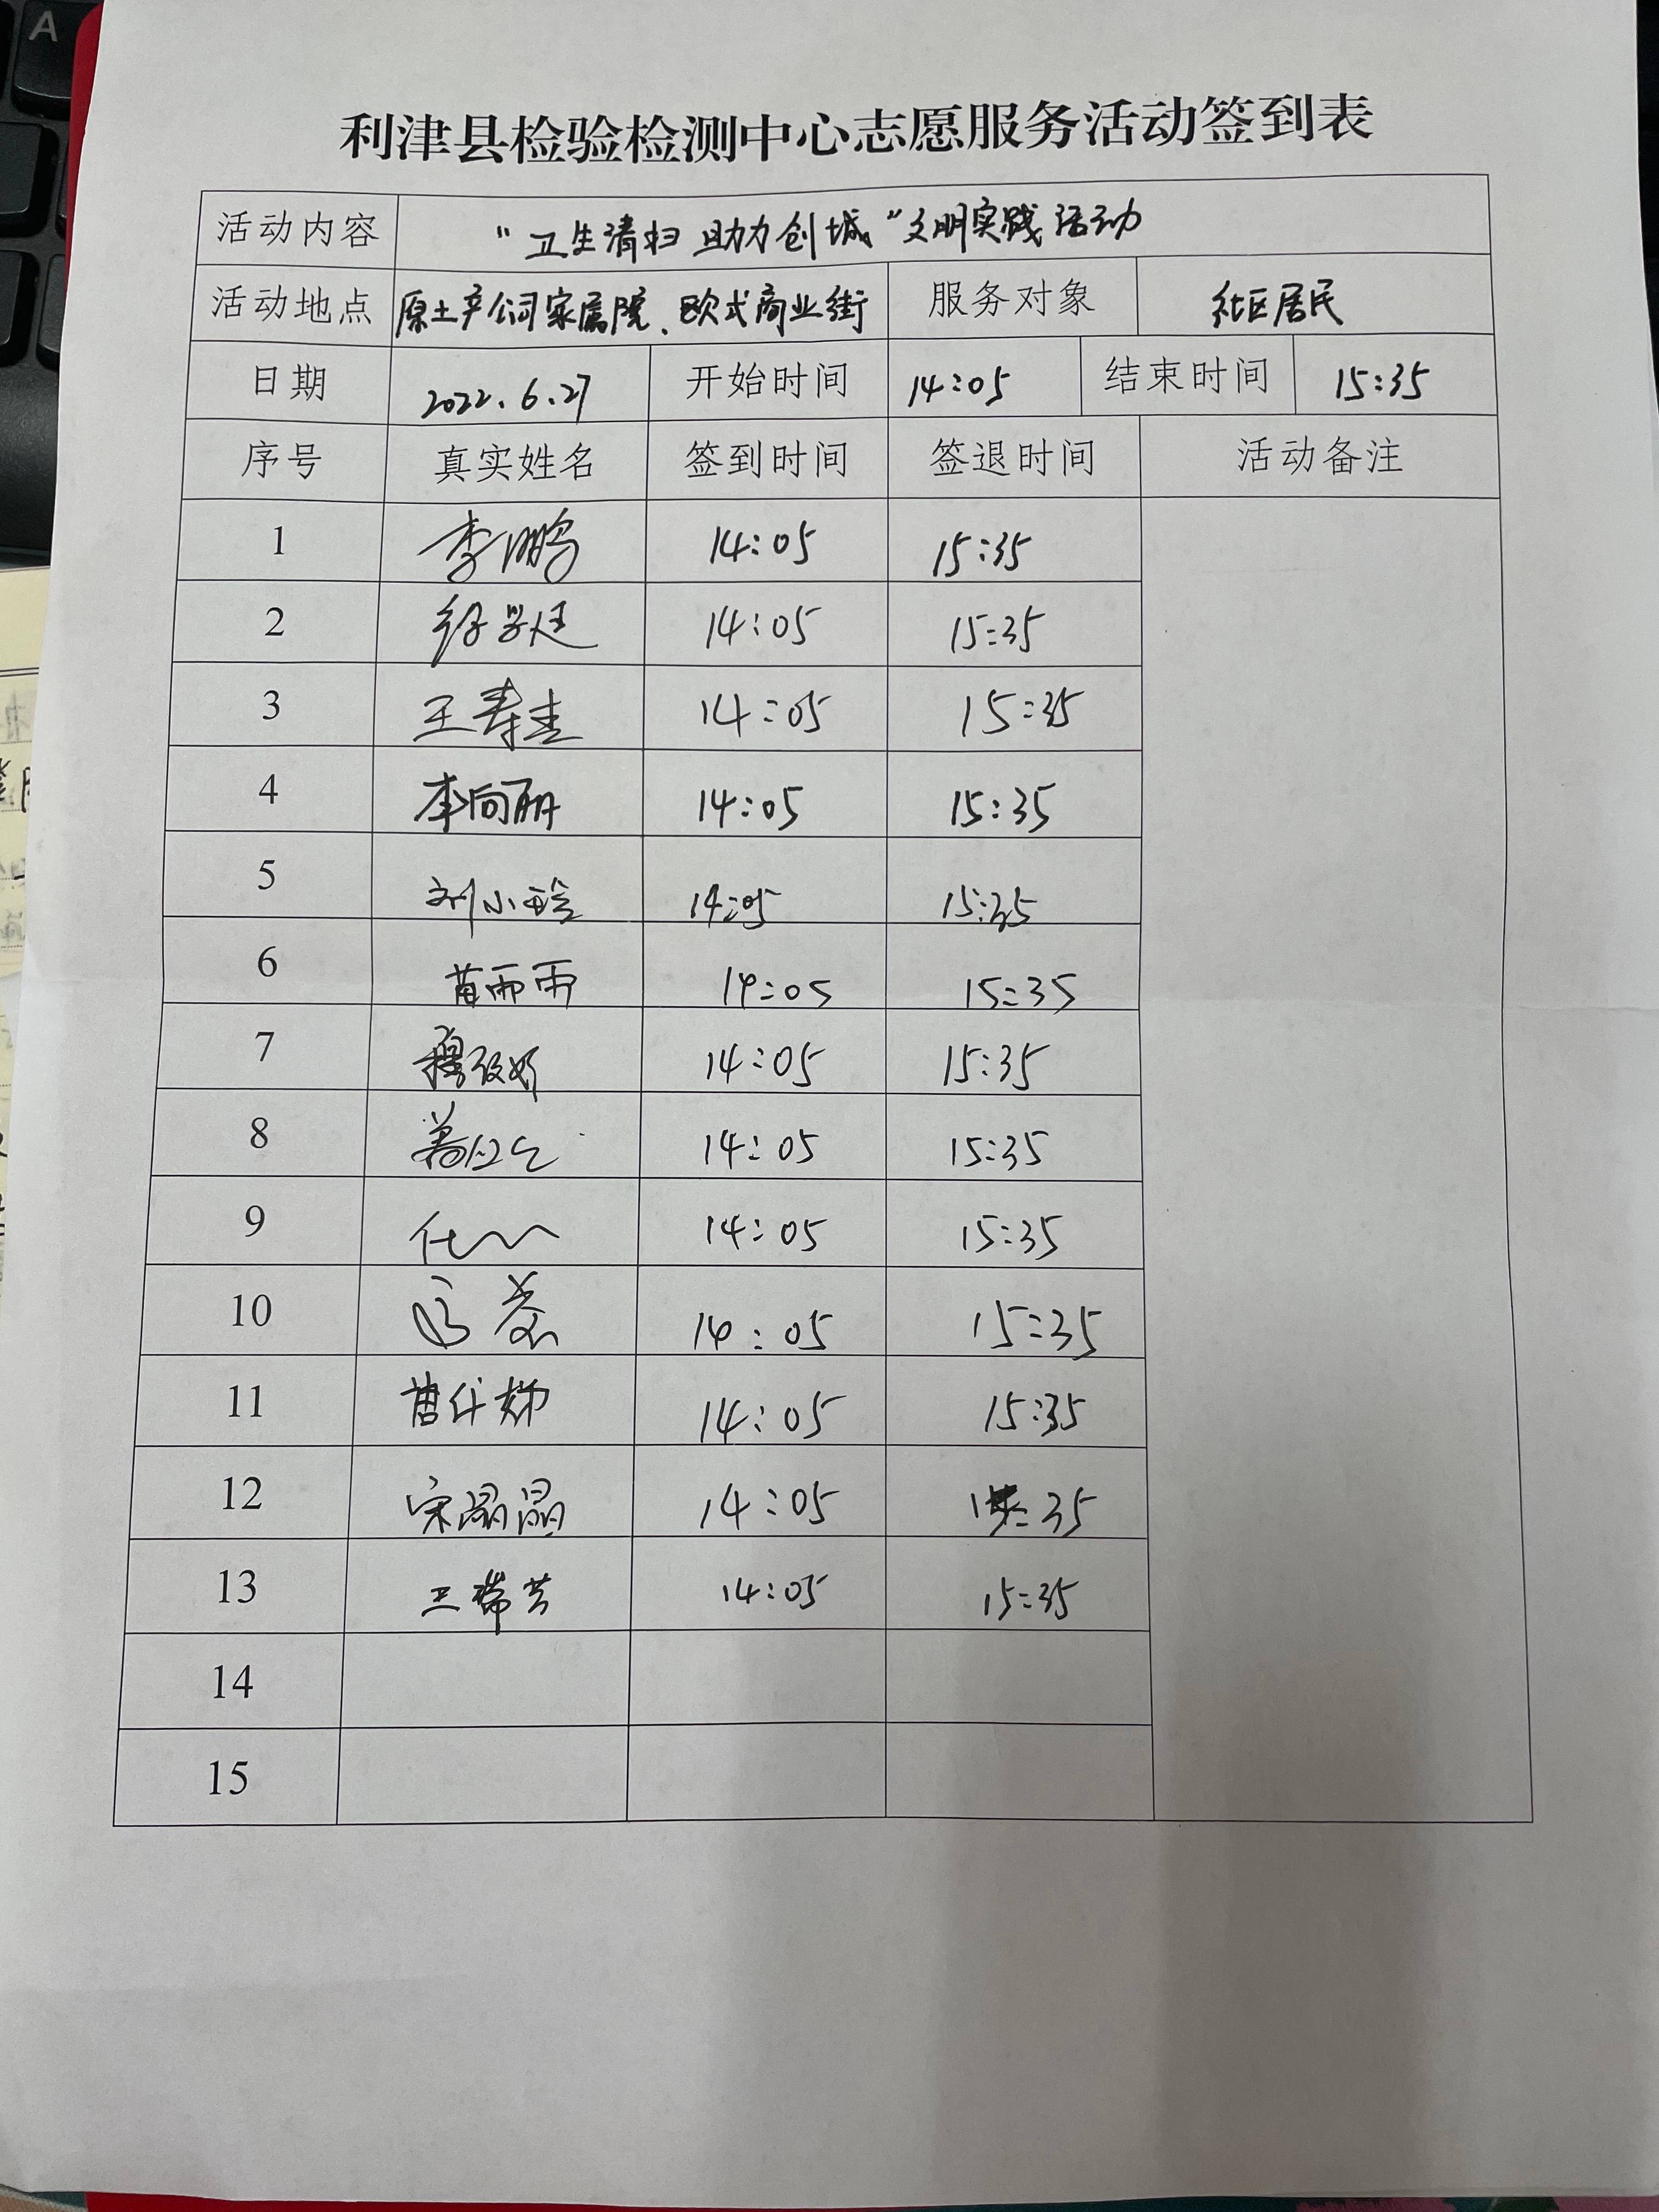 利津县检验检测中心志愿服务活动签到表
活动内容 “卫生清扫 助力创城”文明实践活动
活动地点 原土产公司家属院、欧式商业街 服务对象 社区居民
日期 2022.6.27 开始时间 14:05 结束时间 15:35
序号 真实姓名 签到时间 签退时间 活动备注
1 李鹏 14:05 15:35
2 14:05 15:35
3 王寿圭 14:05 15:35
4 李向丽 14:05 15:35
5 刘小 14:05 15:35
6 苗雨雨 14:05 15:35
7 14:05 15:35
8 14:05 15:35
9 14:05 15:35
10 14:05 15:35
11 14:05 15:35
12 宋晶晶 14:05 15:35
13 王瑞芳 14:05 15:35
14
15
A